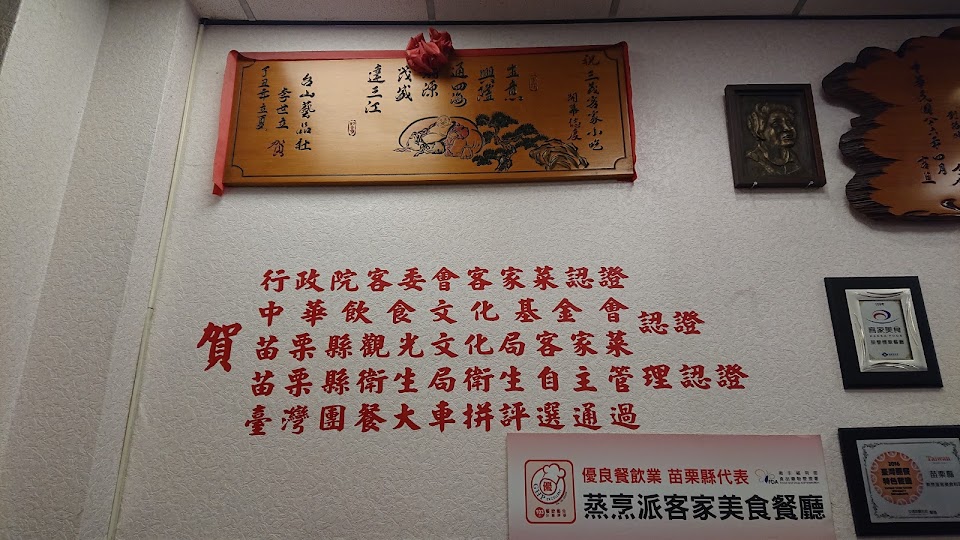 祝 三義客家小吃
開幕誌慶
生意
興隆
通四海
財源
茂盛
達三江
台山藝品社
李世立 賀
丁丑年立夏
賀
行政院客委會客家菜認證
中華飲食文化基金會
苗栗縣觀光文化局客家菜
認證
苗栗縣衛生局衛生自主管理認證
臺灣團餐大車拼評選通過
優良餐飲業 苗栗縣代表
蒸烹派客家美食餐廳
客家美食
Taiwan
苗栗縣